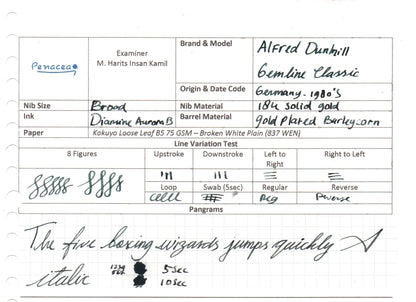 Penacea
Examiner
M. Harits Insan Kamil
Brand & Model
Alfred Dunhill
Gemline Classic
Origin & Date Code
Germany. 1980's
Nib Size
Broad
Nib Material
18k solid gold
Ink
Diamine Aurora B
Barrel Material
gold plated Barleycorn
Paper
Kokuyo Loose Leaf B5 75 GSM – Broken White Plain (837 WEN)
Line Variation Test
8 Figures
Upstroke
Downstroke
Left to Right
Right to Left
Loop
Swab (5sec)
Regular
Reverse
Reg
Reverse
Pangrams
The five boxing wizards jumps quickly
italic
5 sec
10 sec